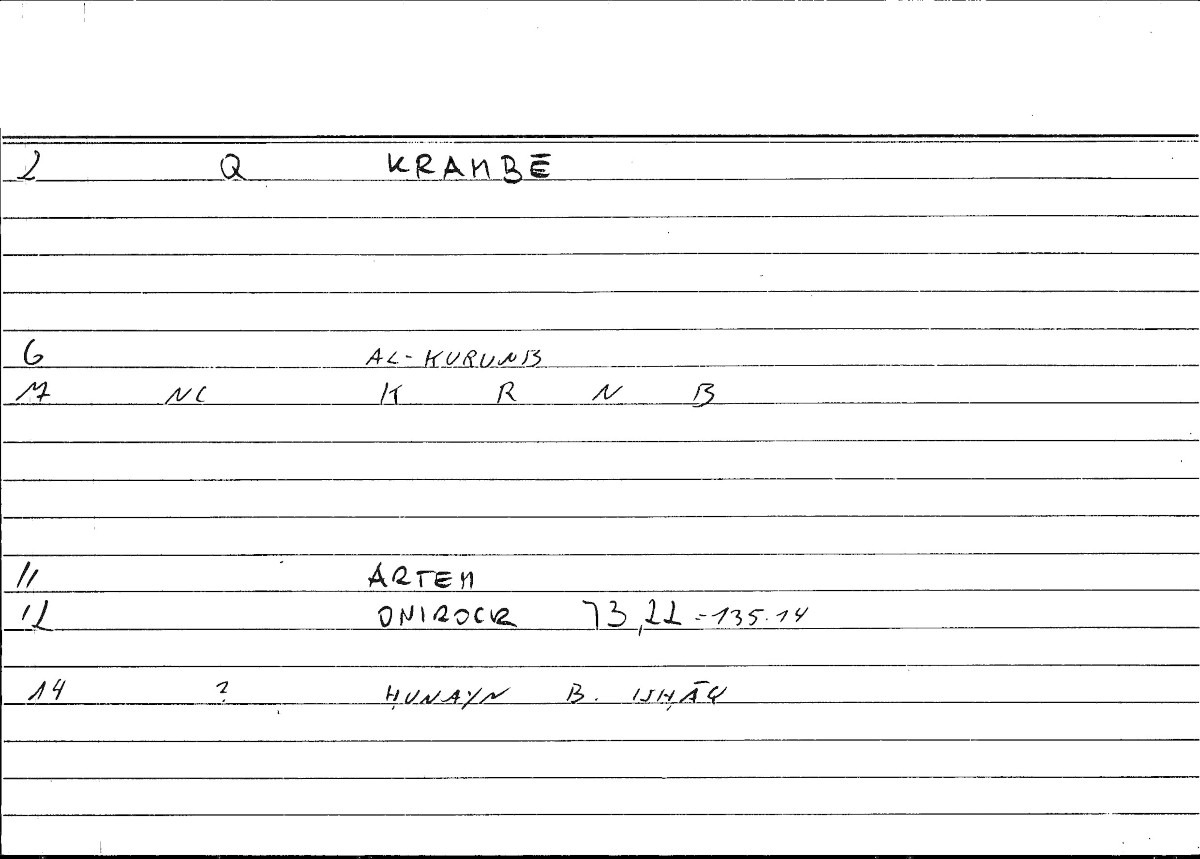 2 Q KRAMBĒ
6 AL-KURUNB
17 NC K R N B
11 ARTEM
12 ONIROCR 73,22 = 135.14
14 ? ḤUNAYN B. ISḤĀQ